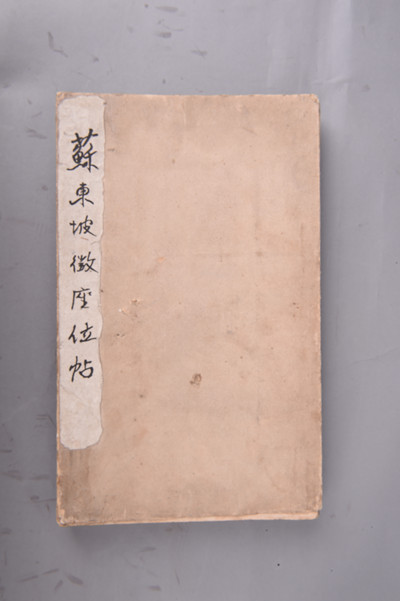 蘇東坡徵座位帖